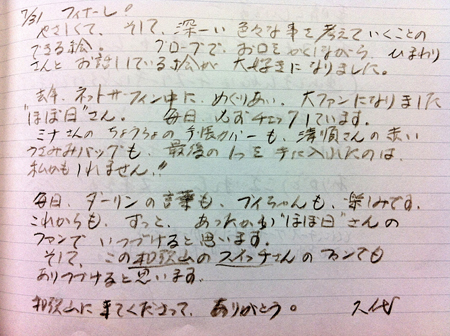 7/31 フィナーレ。
やさしくて、そして、深ーい色々な事を考えていくことの
できる絵。 グローブで、お口をかくしながら、ひまわり
さんとお話している絵が大好きになりました。
去年、ネットサーフィン中に、めぐりあい、大ファンになりました
"ほぼ日"さん。 毎日、必ずチェックしています。
ミナさんのちょうちょの手帳カバーも、清順さんの赤い
うさみみバッグも、最後の1つを手に入れたのは、
私かもしれません!!
毎日、ダーリンの言葉も、ブイちゃんも、楽しみです。
これからも、ずっと、あったかい"ほぼ日"さんの
ファンでいつづけると思います。
そして、この和歌山のスイッチさんのファンでも
ありつづけると思います。
和歌山に来てくださって、ありがとう。